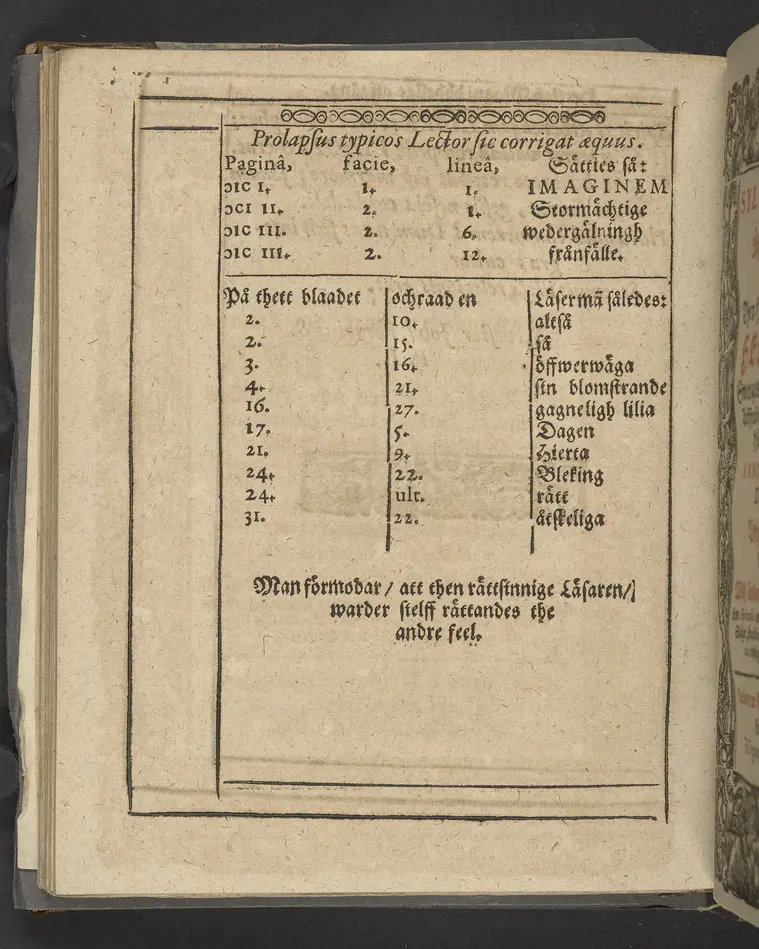 Prolapſus typicos Lector ſic corrigat æquus.
Paginâ, facie, lineâ, Sätties så:
ɔıc I. 1. 1. IMAGINEM
ɔcı II. 2. 1. Stormächtige
ɔıc III. 2. 6. wedergälningh
ɔıc III. 2. 12. frånfälle.
På thett blaadet och raad en Läser mā således:
2. 10. altså
2. 15. så
3. 16. öffwerwäga
4. 21. sin blomstrande
16. 27. gagneligh lilia
17. 5. Dagen
21. 9. Hierta
24. 22. Bleking
24. ult. rätt
31. 22. åtskeliga
Man förmodar / att then rättsinnige Läsaren /
warder sielff rättandes the
andre feel.